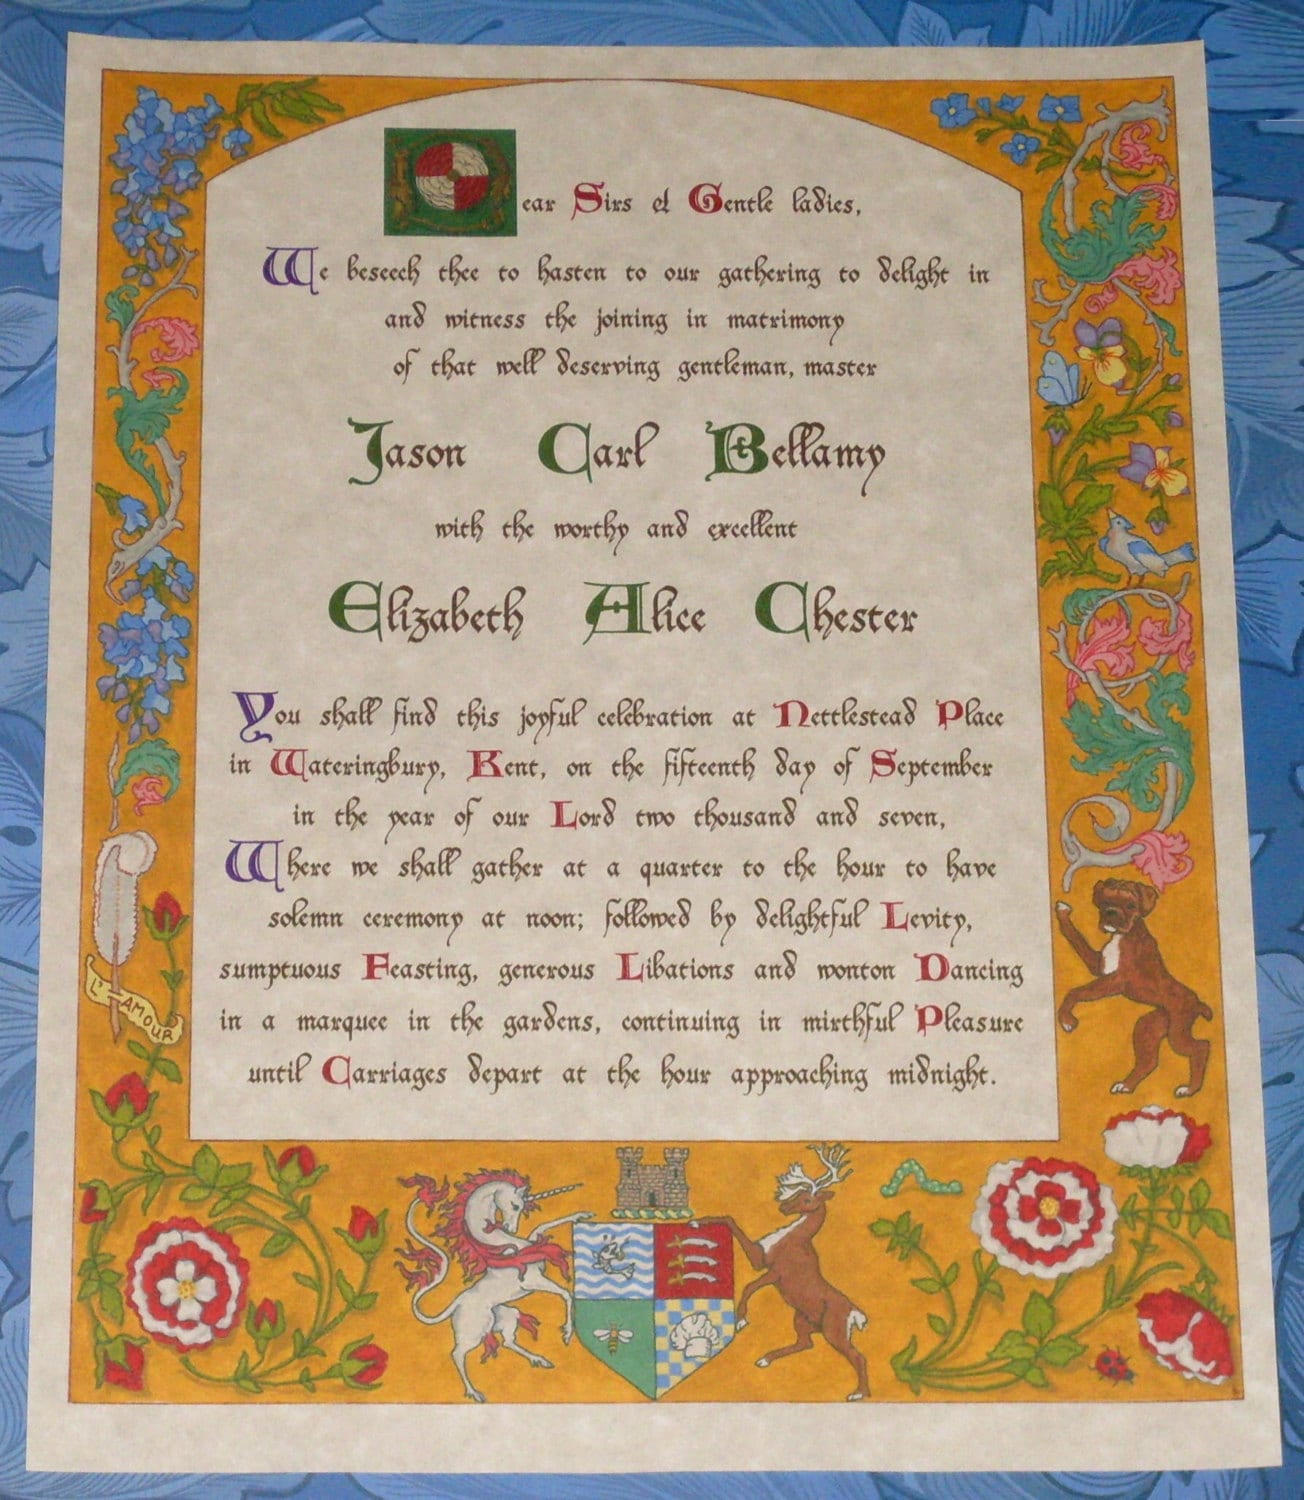 Dear Sirs et Gentle ladies,
We beseech thee to hasten to our gathering to delight in
and witness the joining in matrimony
of that well deserving gentleman, master
Jason Carl Bellamy
with the worthy and excellent
Elizabeth Alice Chester
You shall find this joyful celebration at Nettlestead Place
in Wateringbury, Kent, on the fifteenth day of September
in the year of our Lord two thousand and seven,
Where we shall gather at a quarter to the hour to have
solemn ceremony at noon; followed by delightful Levity,
sumptuous Feasting, generous Libations and wonton Dancing
in a marquee in the gardens, continuing in mirthful Pleasure
until Carriages depart at the hour approaching midnight.
L'AMOUR